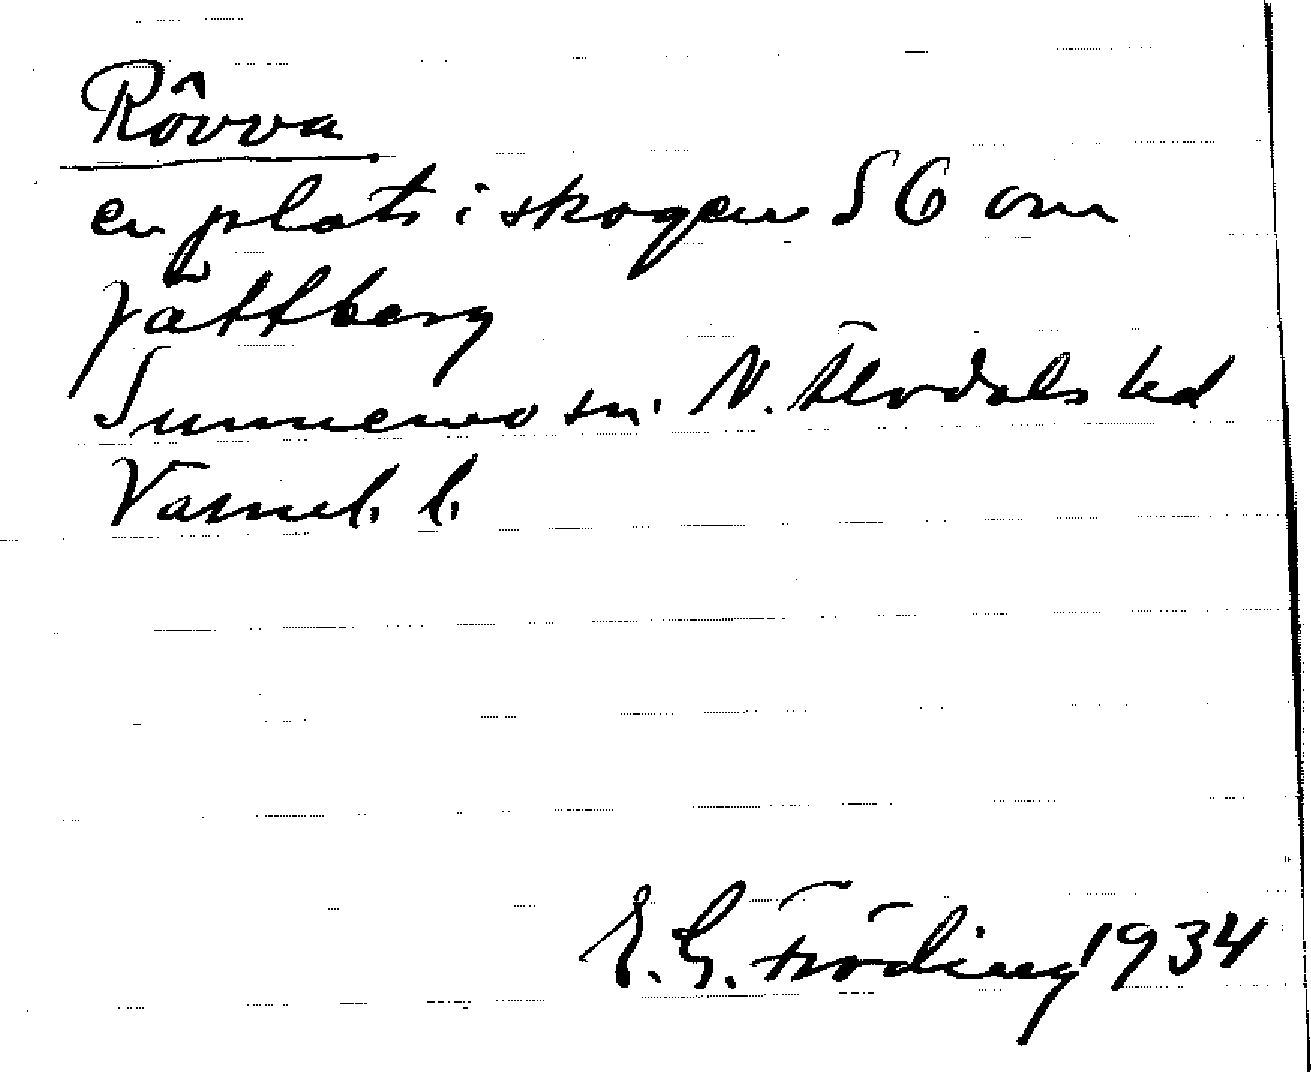 Rôvva
en plats i skogen SO om
Jåttberg
Sunnemo sn. N. Älvdals hd
Värml. l.
E. G. Fröding 1934